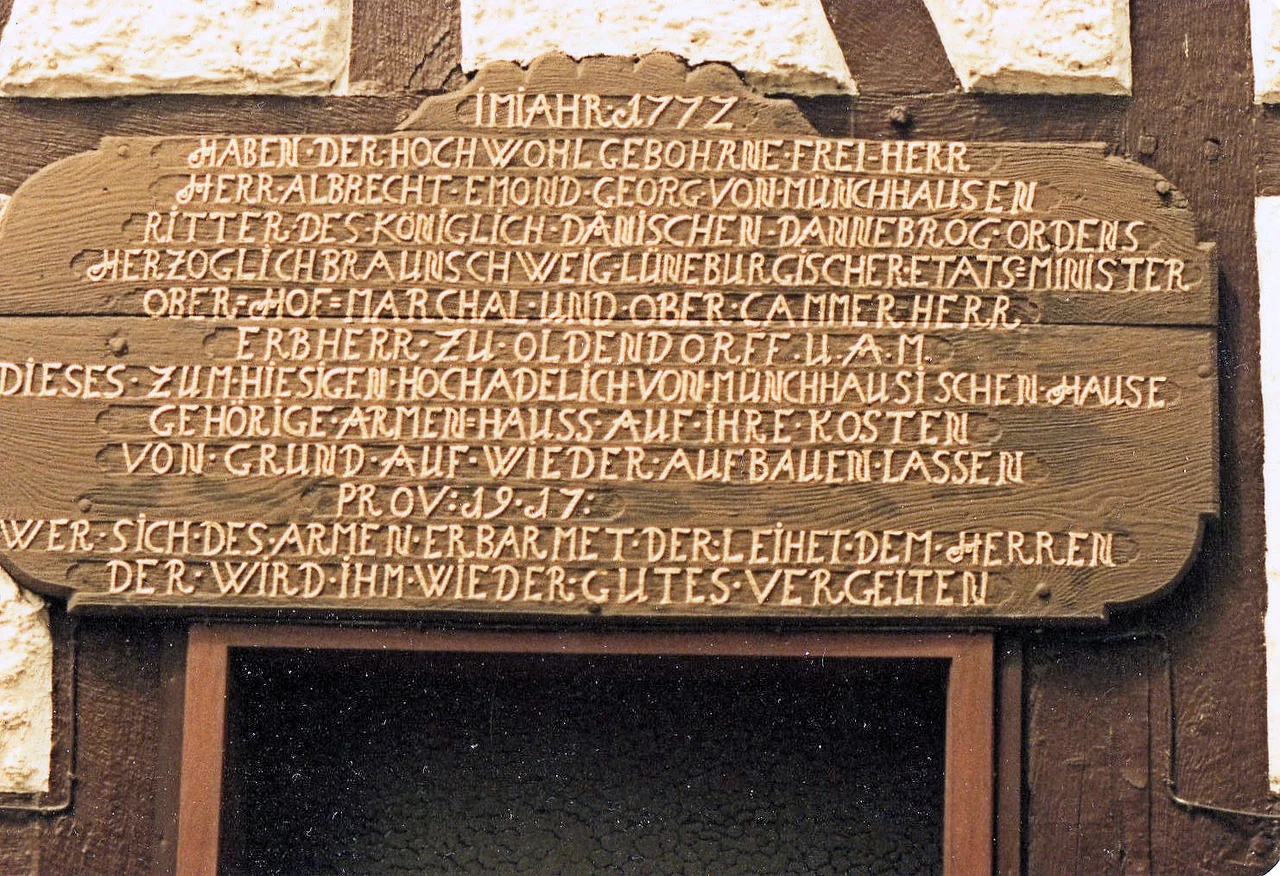 IM IAHR·1772
HABEN·DER·HOCHWOHLGEBOHRNE·FREI-HERR
HERR·ALBRECHT·EMOND·GEORG VON·MÜNCHHAUSEN
RITTER·DES·KÖNIGLICH·DÄNISCHEN·DANNEBROG·ORDENS
HERZOGLICH BRAUNSCHWEIG·LÜNEBURGISCHER·ETATS=MINISTER
OBER=HOF=MARCHAL·UND·OBER·CAMMER·HERR
ERBHERR·ZU·OLDENDORFF·U·A·M·
DIESES·ZUM·HIESIGEN·HOCHADELICH·VON·MÜNCHHAUSISCHEN·HAUSE
GEHÖRIGE·ARMEN=HAUSS·AUF·IHRE·KOSTEN
VON·GRUND·AUF·WIEDER·AUFBAUEN·LASSEN
PROV:19·17:
WER·SICH·DES·ARMEN·ERBARMET·DER·LEIHET·DEM·HERREN
DER·WIRD·IHM·WIEDER·GUTES·VERGELTEN